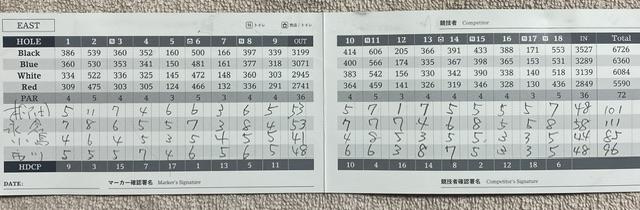 EAST
トイレ 売店/トイレ
HOLE 1 2 3 4 5 6 7 8 9 OUT
Black 386 539 360 352 160 500 166 397 339 3199
Blue 360 530 353 341 150 481 161 377 318 3071
White 334 522 336 325 145 472 148 360 303 2945
Red 309 475 303 305 124 466 132 336 291 2741
PAR 4 5 4 4 3 5 3 4 4 36
5 11 7 4 6 6 3 6 5 53
7 8 6 5 5 7 3 8 4 53
4 6 4 5 3 5 4 5 5 41
5 5 5 7 4 6 5 6 5 48
HDCP 9 3 15 7 17 1 13 5 11
DATE: マーカー確認署名 Marker's Signature
競技者 Competitor
10 11 12 13 14 15 16 17 18 IN Total
414 606 205 366 391 433 388 171 553 3527 6726
400 566 174 335 367 398 365 153 531 3289 6360
383 542 156 330 342 390 338 140 518 3139 6084
364 459 141 326 319 346 326 130 438 2849 5590
4 5 3 4 4 4 4 3 5 36 72
5 7 1 7 5 5 5 5 7 48 101
7 7 7 4 6 8 5 5 8 58 111
4 8 5 3 5 5 3 3 5 44 85
6 6 3 8 7 5 3 5 5 48 96
10 4 16 14 8 2 12 18 6
競技者確認署名 Competitor's Signature